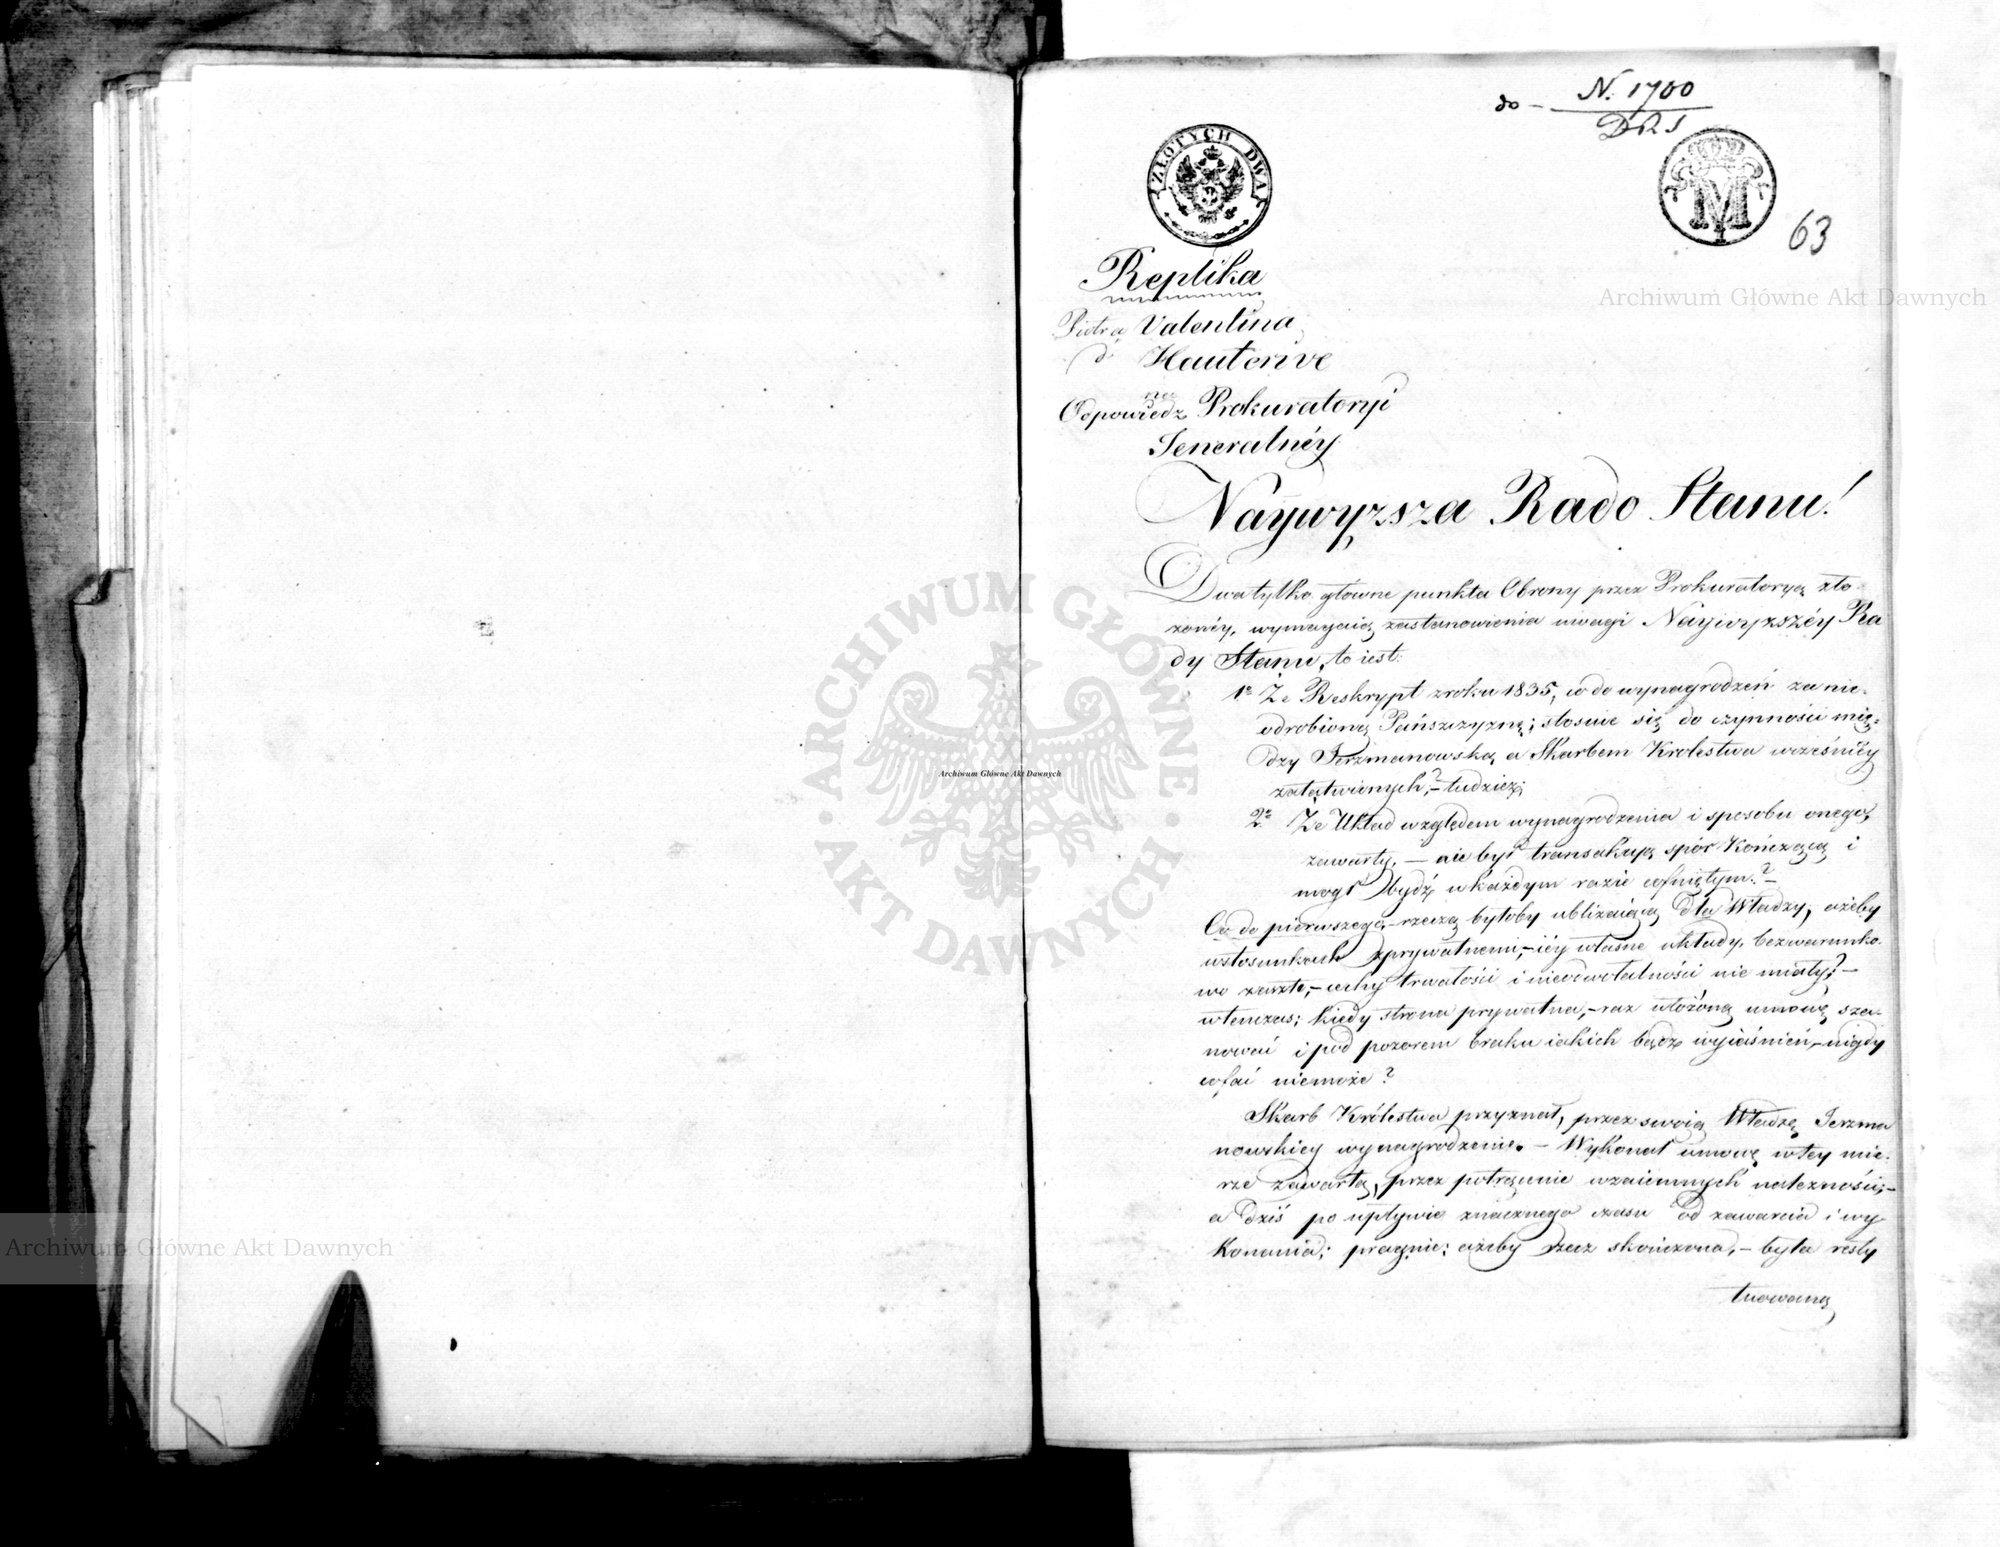 do — N. 1700
DRS
ZŁOTYCH DWA
M
63
Replika
Piotra Valentina
d' Hauterive
Odpowiedz Prokuratoryi
Jeneralnéy
Naywyższa Rado Stanu!
Dwa tylko główne punkta Obrony przez Prokuratoryą zło-
żonéy, wymagaią zastanowienia uwagi Naywyższéy Ra
dy Stanu, to iest:
1e Że Reskrypt z roku 1835, co do wynagrodzeń za nie-
odrobioną Pańszczyznę; stosuie się do czynności mię-
dzy Jerzmanowską a Skarbem Krolestwa wcześniéy
załatwionych,?— tudzież;
2e Że Układ względem wynagrodzenia i sposobu onego,
zawarty, — nie był transakcyą spór Kończącą i
mógł bydź w każdym razie cofniętym.?—
Co do pierwszego,— rzeczą byłoby ubliżaiącą dla Władzy, ażeby
w stosunkach z prywatnemi,— iéy własne układy, bezwarunko-
wo zaszłe,— cechy trwałości i nieodwołalności nie miały?—
wtenczas; kiedy strona prywatna,— raz ułożoną umowę sza-
nować i pod pozorem braku iakich bądź wyiaśnień,— nigdy
cofać niemoże?
Skarb Królestwa przyznał, przez swoią Władzę Jerzma
nowskiey wynagrodzenie. — Wykonał umowę w tey mie-
rze zawartą, przez potrącenie wzaiemnych należności;—
a dziś po upływie znacznego czasu od zawarcia i wy
Konania; pragnie; ażeby rzecz skończona, — była resty
tuowaną
Archiwum Główne Akt Dawnych
ARCHIWUM GŁÓWNE AKT DAWNYCH
Archiwum Główne Akt Dawnych
Archiwum Główne Akt Dawnych